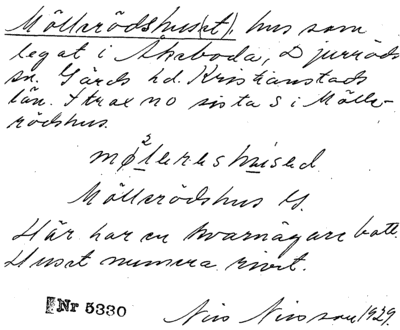 Möllerödshus(et), hus som
legat i Åkeboda, Djurröds
sn. Gärds hd. Kristianstads
län. Strax no sista S i Mölle-
rödshus.
Möllerödshus
Här har en kvarnägare bott.
Huset numera rivet.
Nr 5330
Nils Nilsson 1929.